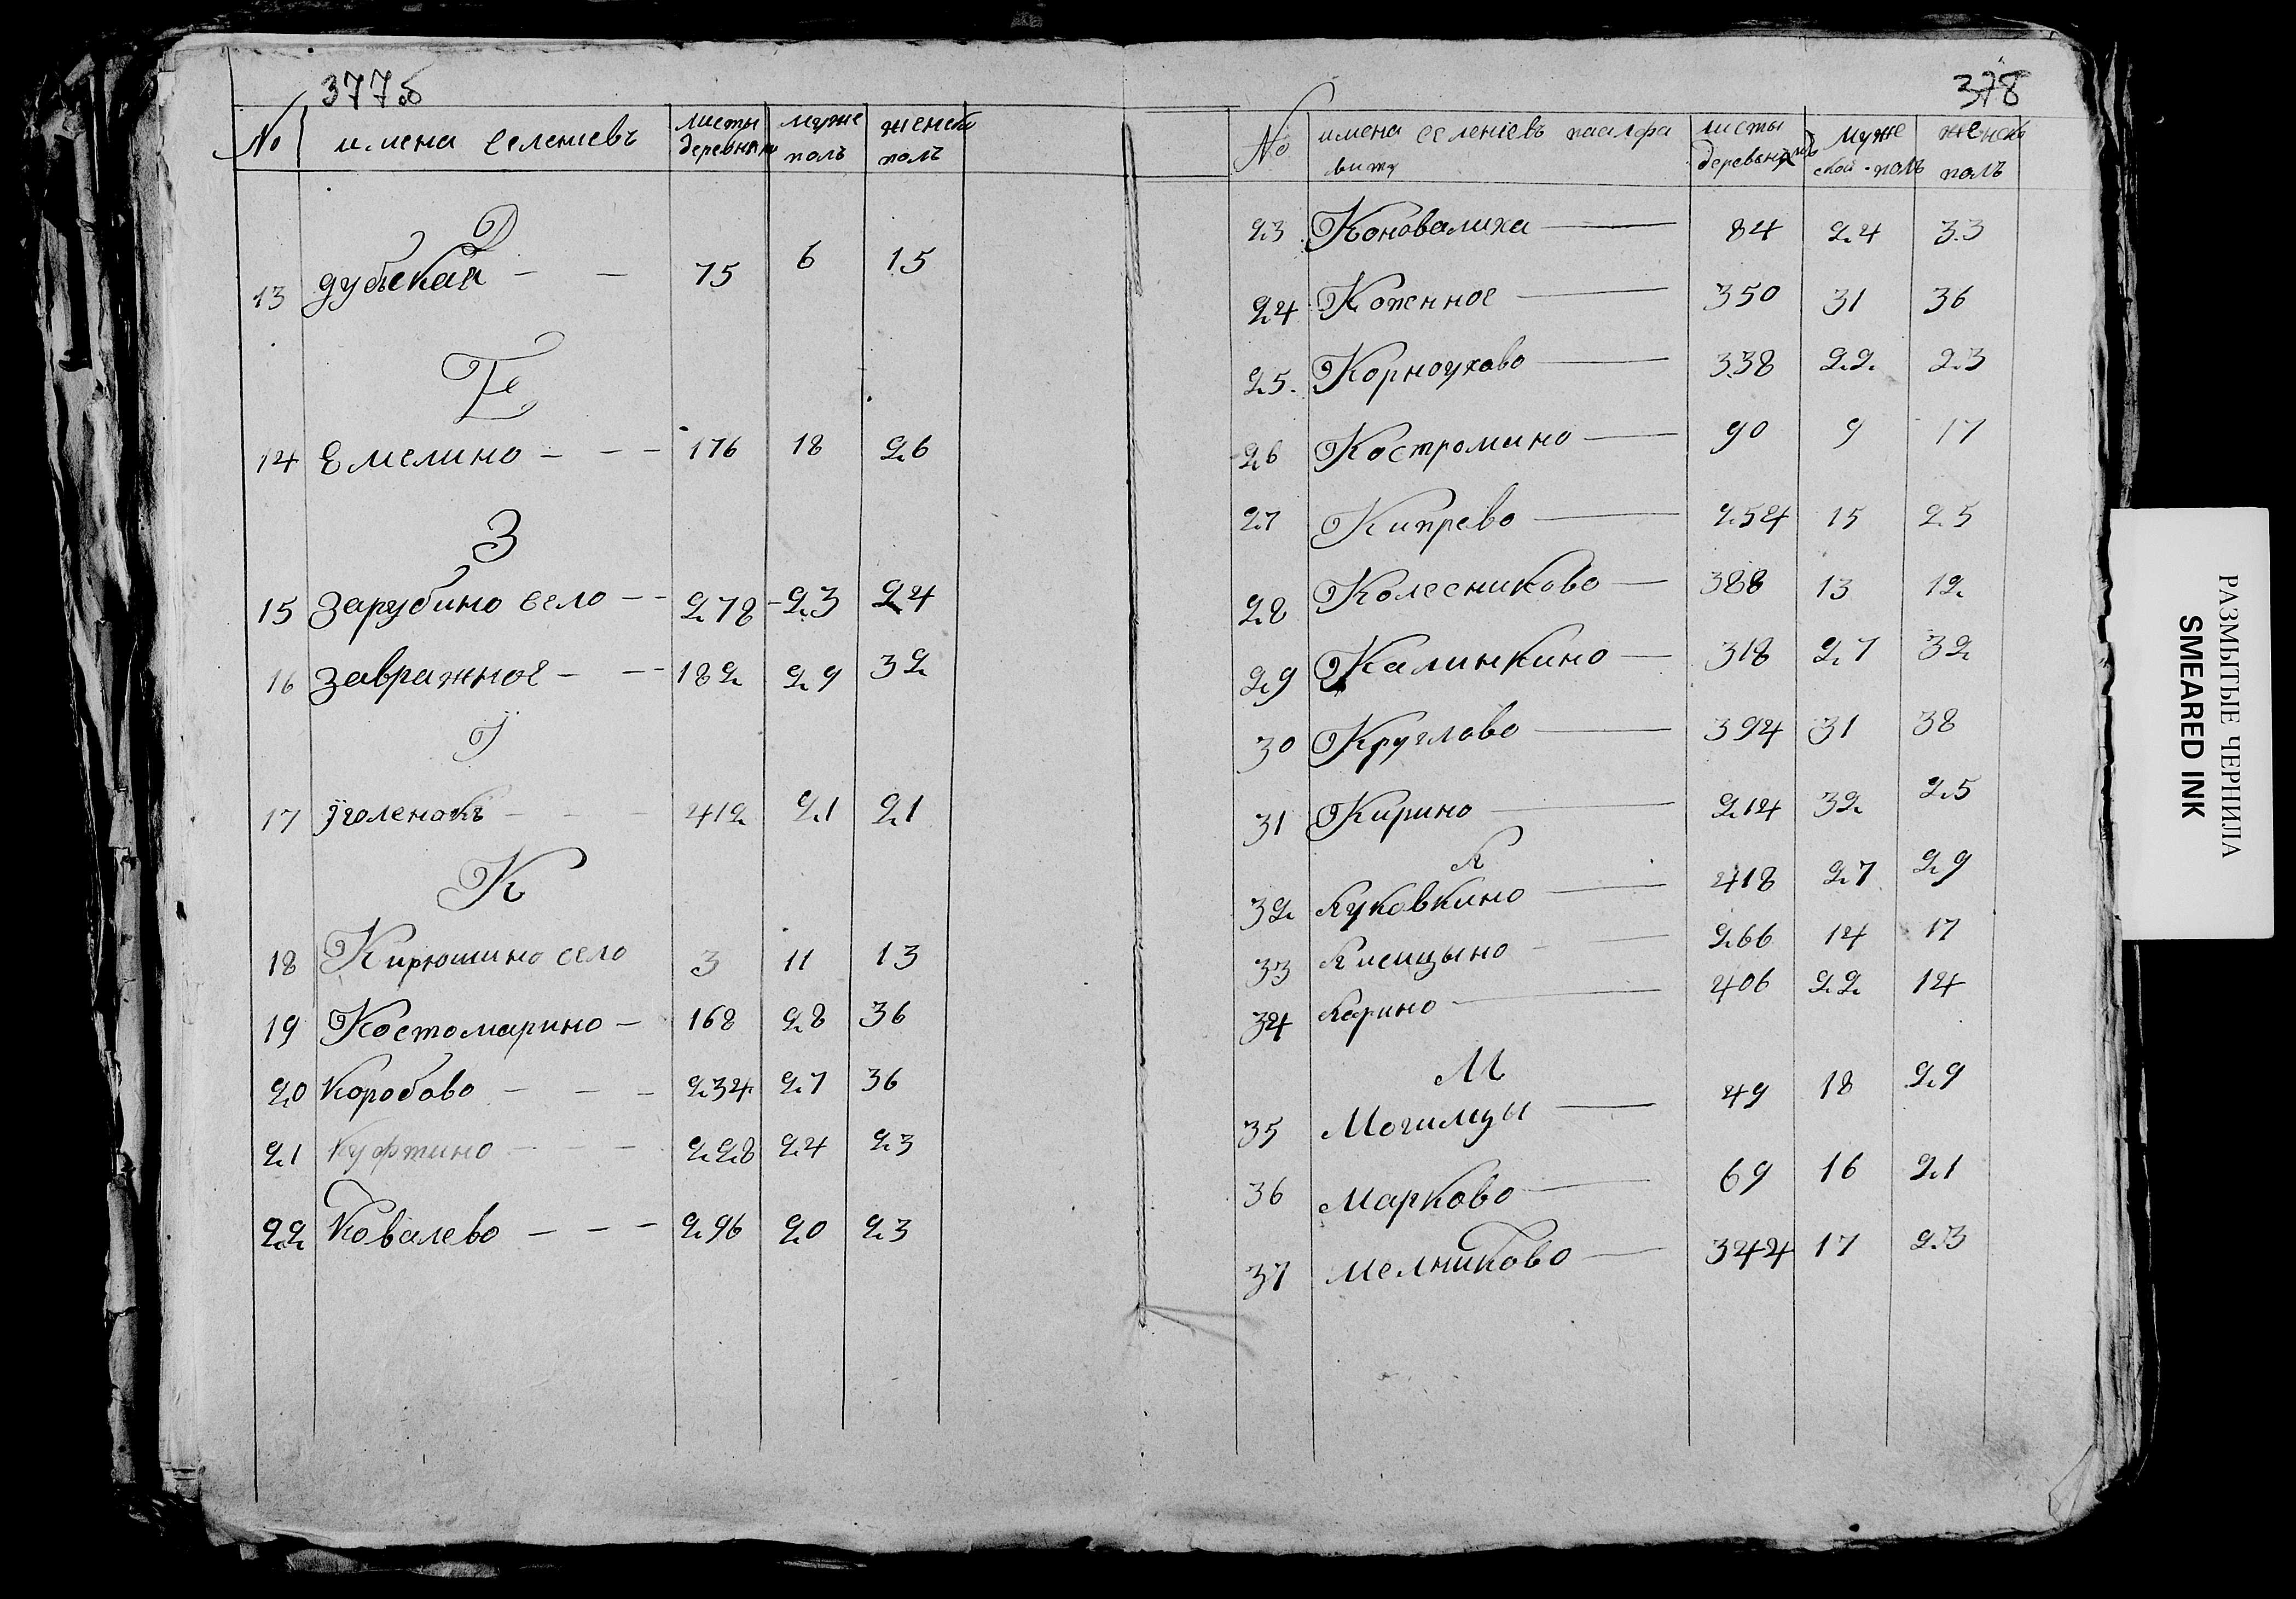 377б
№ имена селениевъ листы деревнями муже полъ женскъ полъ
Д
13 дубская — — 75 6 15
Е
14 Емелино - - - 176 18 26
З
15 Зарубино село - - 278 - 23 24
16 Завражное - - 182 29 32
Ї
17 Їголенокъ - - - 412 21 21
К
18 Кирюшино село 3 11 13
19 Костомарино - 168 28 36
20 Коробово - - - 234 27 36
21 Куфтино - - - 228 24 23
22 Ковалево - - - 296 20 23
378
№ имена селениевъ паалфа листы муже женскъ
виту деревнямъ ской полъ полъ
23 Коновалиха — 84 24 33
24 Коженное — 350 31 36
25. Корноухово — 338 22. 23
26 Костромино — 90 9 17
27 Кипрево — 254 15 25
28 Колесниково — 388 13 12
29 Калинкино — 318 27 32
30 Круглово — 394 31 38
31 Кирино — 214 32 25
Л
32 Луковкино — 418 27 29
33 Лисицыно - — 266 14 17
34 Ларино — 406 22 14
М
35 Могилцы — 49 18 29
36 Марково — 69 16 21
37 Мелниково — 344 17 23
РАЗМЫТЫЕ ЧЕРНИЛА
SMEARED INK